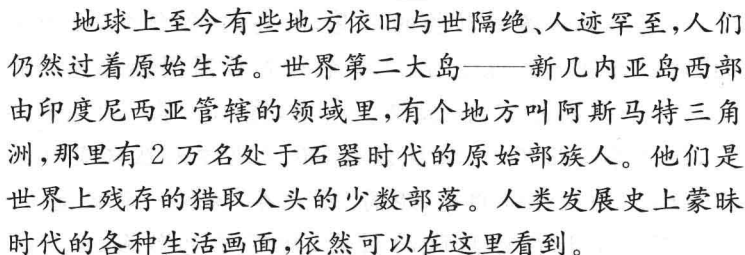 地球上至今有些地方依旧与世隔绝、人迹罕至,人们
仍然过着原始生活。世界第二大岛——新几内亚岛西部
由印度尼西亚管辖的领域里,有个地方叫阿斯马特三角
洲,那里有2万名处于石器时代的原始部族人。他们是
世界上残存的猎取人头的少数部落。人类发展史上蒙昧
时代的各种生活画面,依然可以在这里看到。